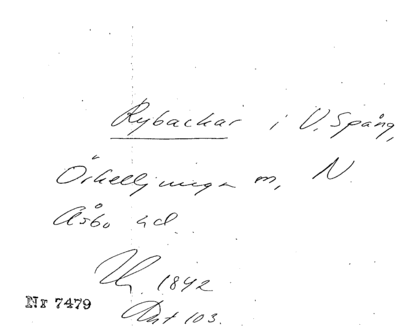 Rybackar i V. Spång,
Örkelljunga m, N.
Åsbo hd.
1842
Nr 7479
103.